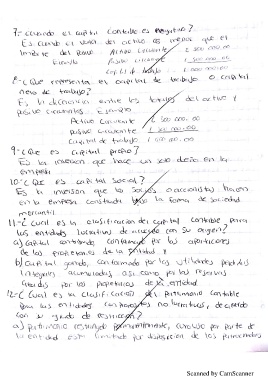 7.- ¿Cuando el capital contable es negativo?
Es cuando el valor del activo es menor que el
importe del pasivo Activo Circulante
Ejemplo Pasivo circulante
Capital de trabajo
8.- ¿Que representa el capital de trabajo o capital
neto de trabajo?
Es la diferencia entre los totales del activo y
pasivo circulantes. Ejemplo
Activo Circulante
pasivo circulante
Capital de trabajo
9.- ¿Que es capital propio?
Es la inversion que hace un solo dueño en la
empresa
10.- ¿Que es capital social?
Es la inversion que los Socios o accionistas hacen
en la empresa constituida bajo la forma de sociedad
mercantil
11.- ¿Cual es la clasificacion del capital contable para
las entidades lucrativas de acuerdo con su origen?
a) Capital contribuido, conformado por las aportaciones
de los propietarios de la entidad y
b) Capital ganado, conformado por las utilidades
integrales acumuladas asi como por las reservas
creadas por los propietarios de la entidad
12.- ¿Cual es la Clasificacion del Patrimonio contable
para las entidades con propositos no lucrativos, de acuerdo
con su grado de restriccion?
a) Patrimonio restringido permanentemente, cuyo uso por parte de
la entidad esta limitado por disposicion de los
Scanned by CamScanner